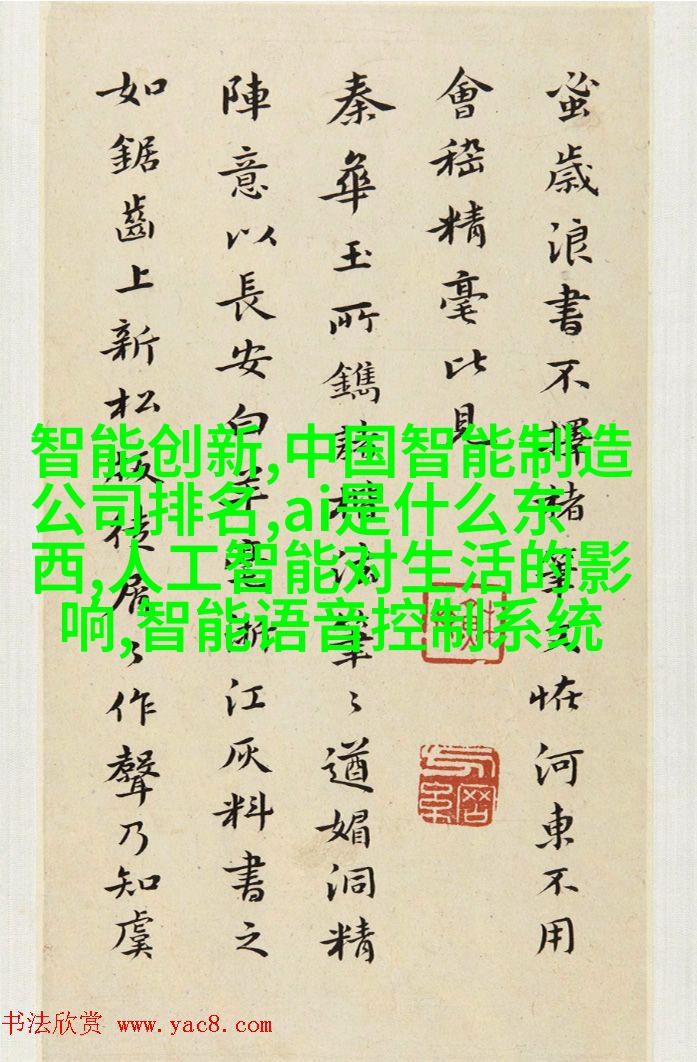 蚤歲浪書不擇楮筆恠河東不用
會稽精毫比見
秦華玉所鐫諸楷法筆〻遒媚洞精
陣意以長安白羊浙江灰料書之
如鋸齒上新松版徒屑〻作聲乃知虞
智能创新,中国智能制造
公司排名,ai是什么东
西,人工智能对生活的影
响,智能语音控制系统
书法欣赏 www.yac8.com